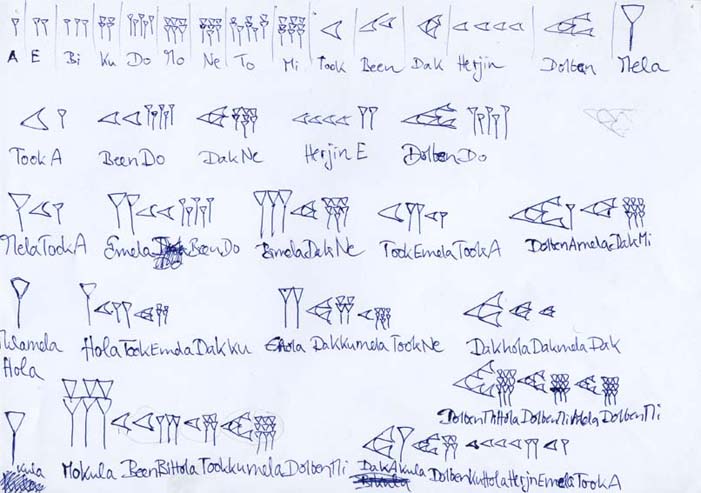 A E Bi Ku Do Mo Ne To Mi Took Been Dak Herjin Dolben Mela
TookA BeenDo DakNe Herjin E DolbenDo
MelaTookA EmelaBeenDo BimelaDakNe TookEmelaTookA DolbenAmelaDakMi
HolaTookEmelaDakKu Ehola DakkumelaTookNe DakholaDakmelaDak
Hola
DolbenMiHola DolbenMiMela DolbenMi
Mokula BeenBiHola TookkumelaDolbenMi DakAkula DolbenKuHolaHerjinEmelaTookA